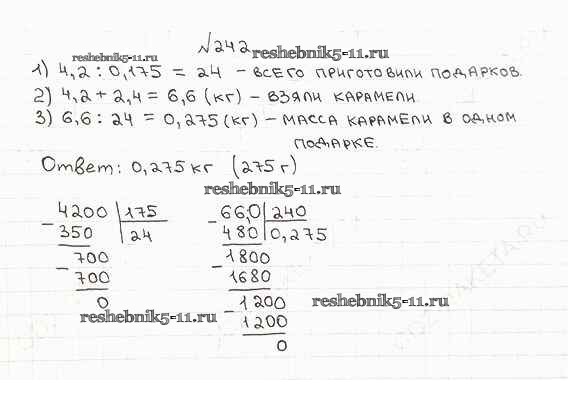 №242
reshebnik5-11.ru reshebnik5-11.ru
1) 4,2 : 0,175 = 24 – всего приготовили подарков.
2) 4,2 + 2,4 = 6,6 (кг) – взяли карамели
3) 6,6 : 24 = 0,275 (кг) – масса карамели в одном
подарке.
Ответ: 0,275 кг (275 г)
reshebnik5-11.ru
4200 175 66,0 240
– 350 24 – 480 0,275
700 1800
– 700 – 1680
0 1200
reshebnik5-11.ru – 1200 reshebnik5-11.ru
0